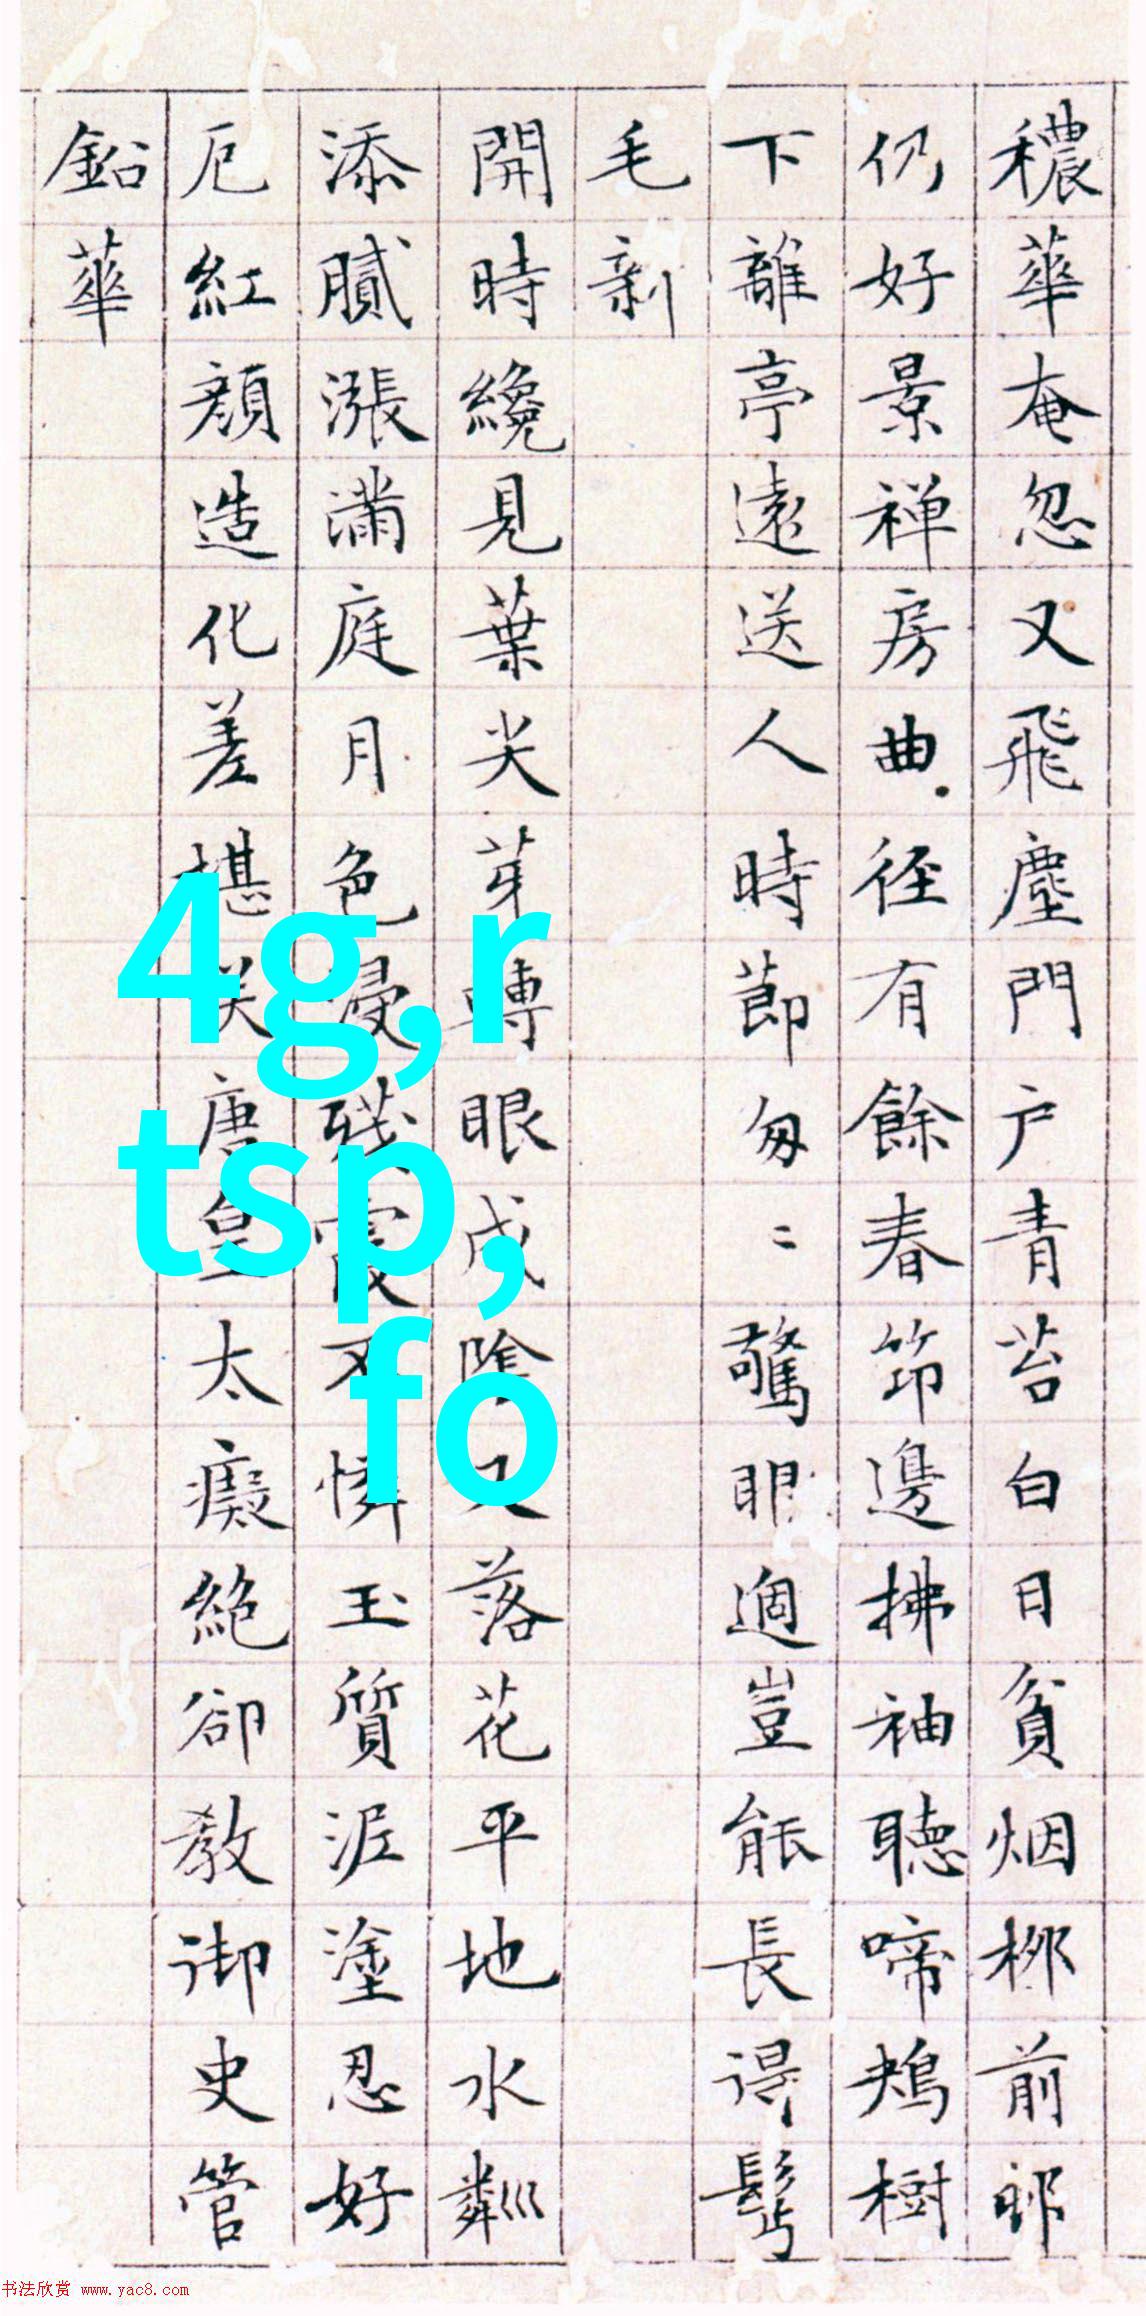 穠華奄忽又飛塵門户青苔白日貧烟桺前邨
仍好景禅房曲径有餘春笻邊拂袖聽啼鴂樹
下離亭遠送人時節匆〻驚眼過豈能長得鬢
毛新
開時纔見葉尖芽轉眼成陰又落花平地水粼
添膩漲滿庭月色浸殘霞不憐玉質泥塗忍好
厄紅顏造化差堪笑唐皇太癡絕卻教御史管
鉛華
4g,r
tsp,
fo
书法欣赏 www.yac8.com